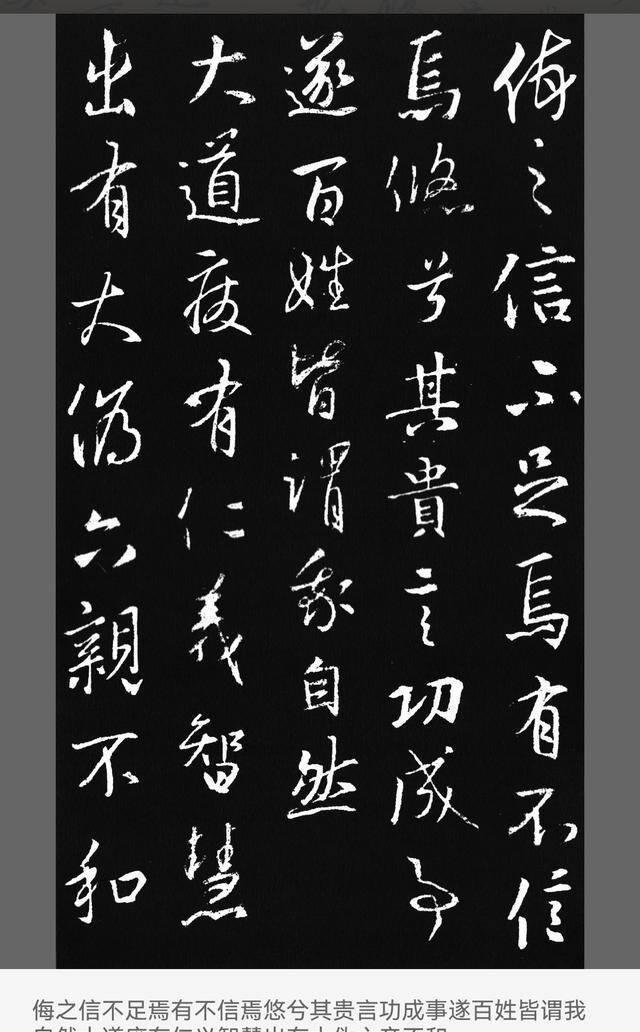 侮之信不足焉有不信
焉悠兮其貴言功成事
遂百姓皆謂我自然
大道廢有仁義智慧
出有大偽六親不和
侮之信不足焉有不信焉悠兮其贵言功成事遂百姓皆谓我